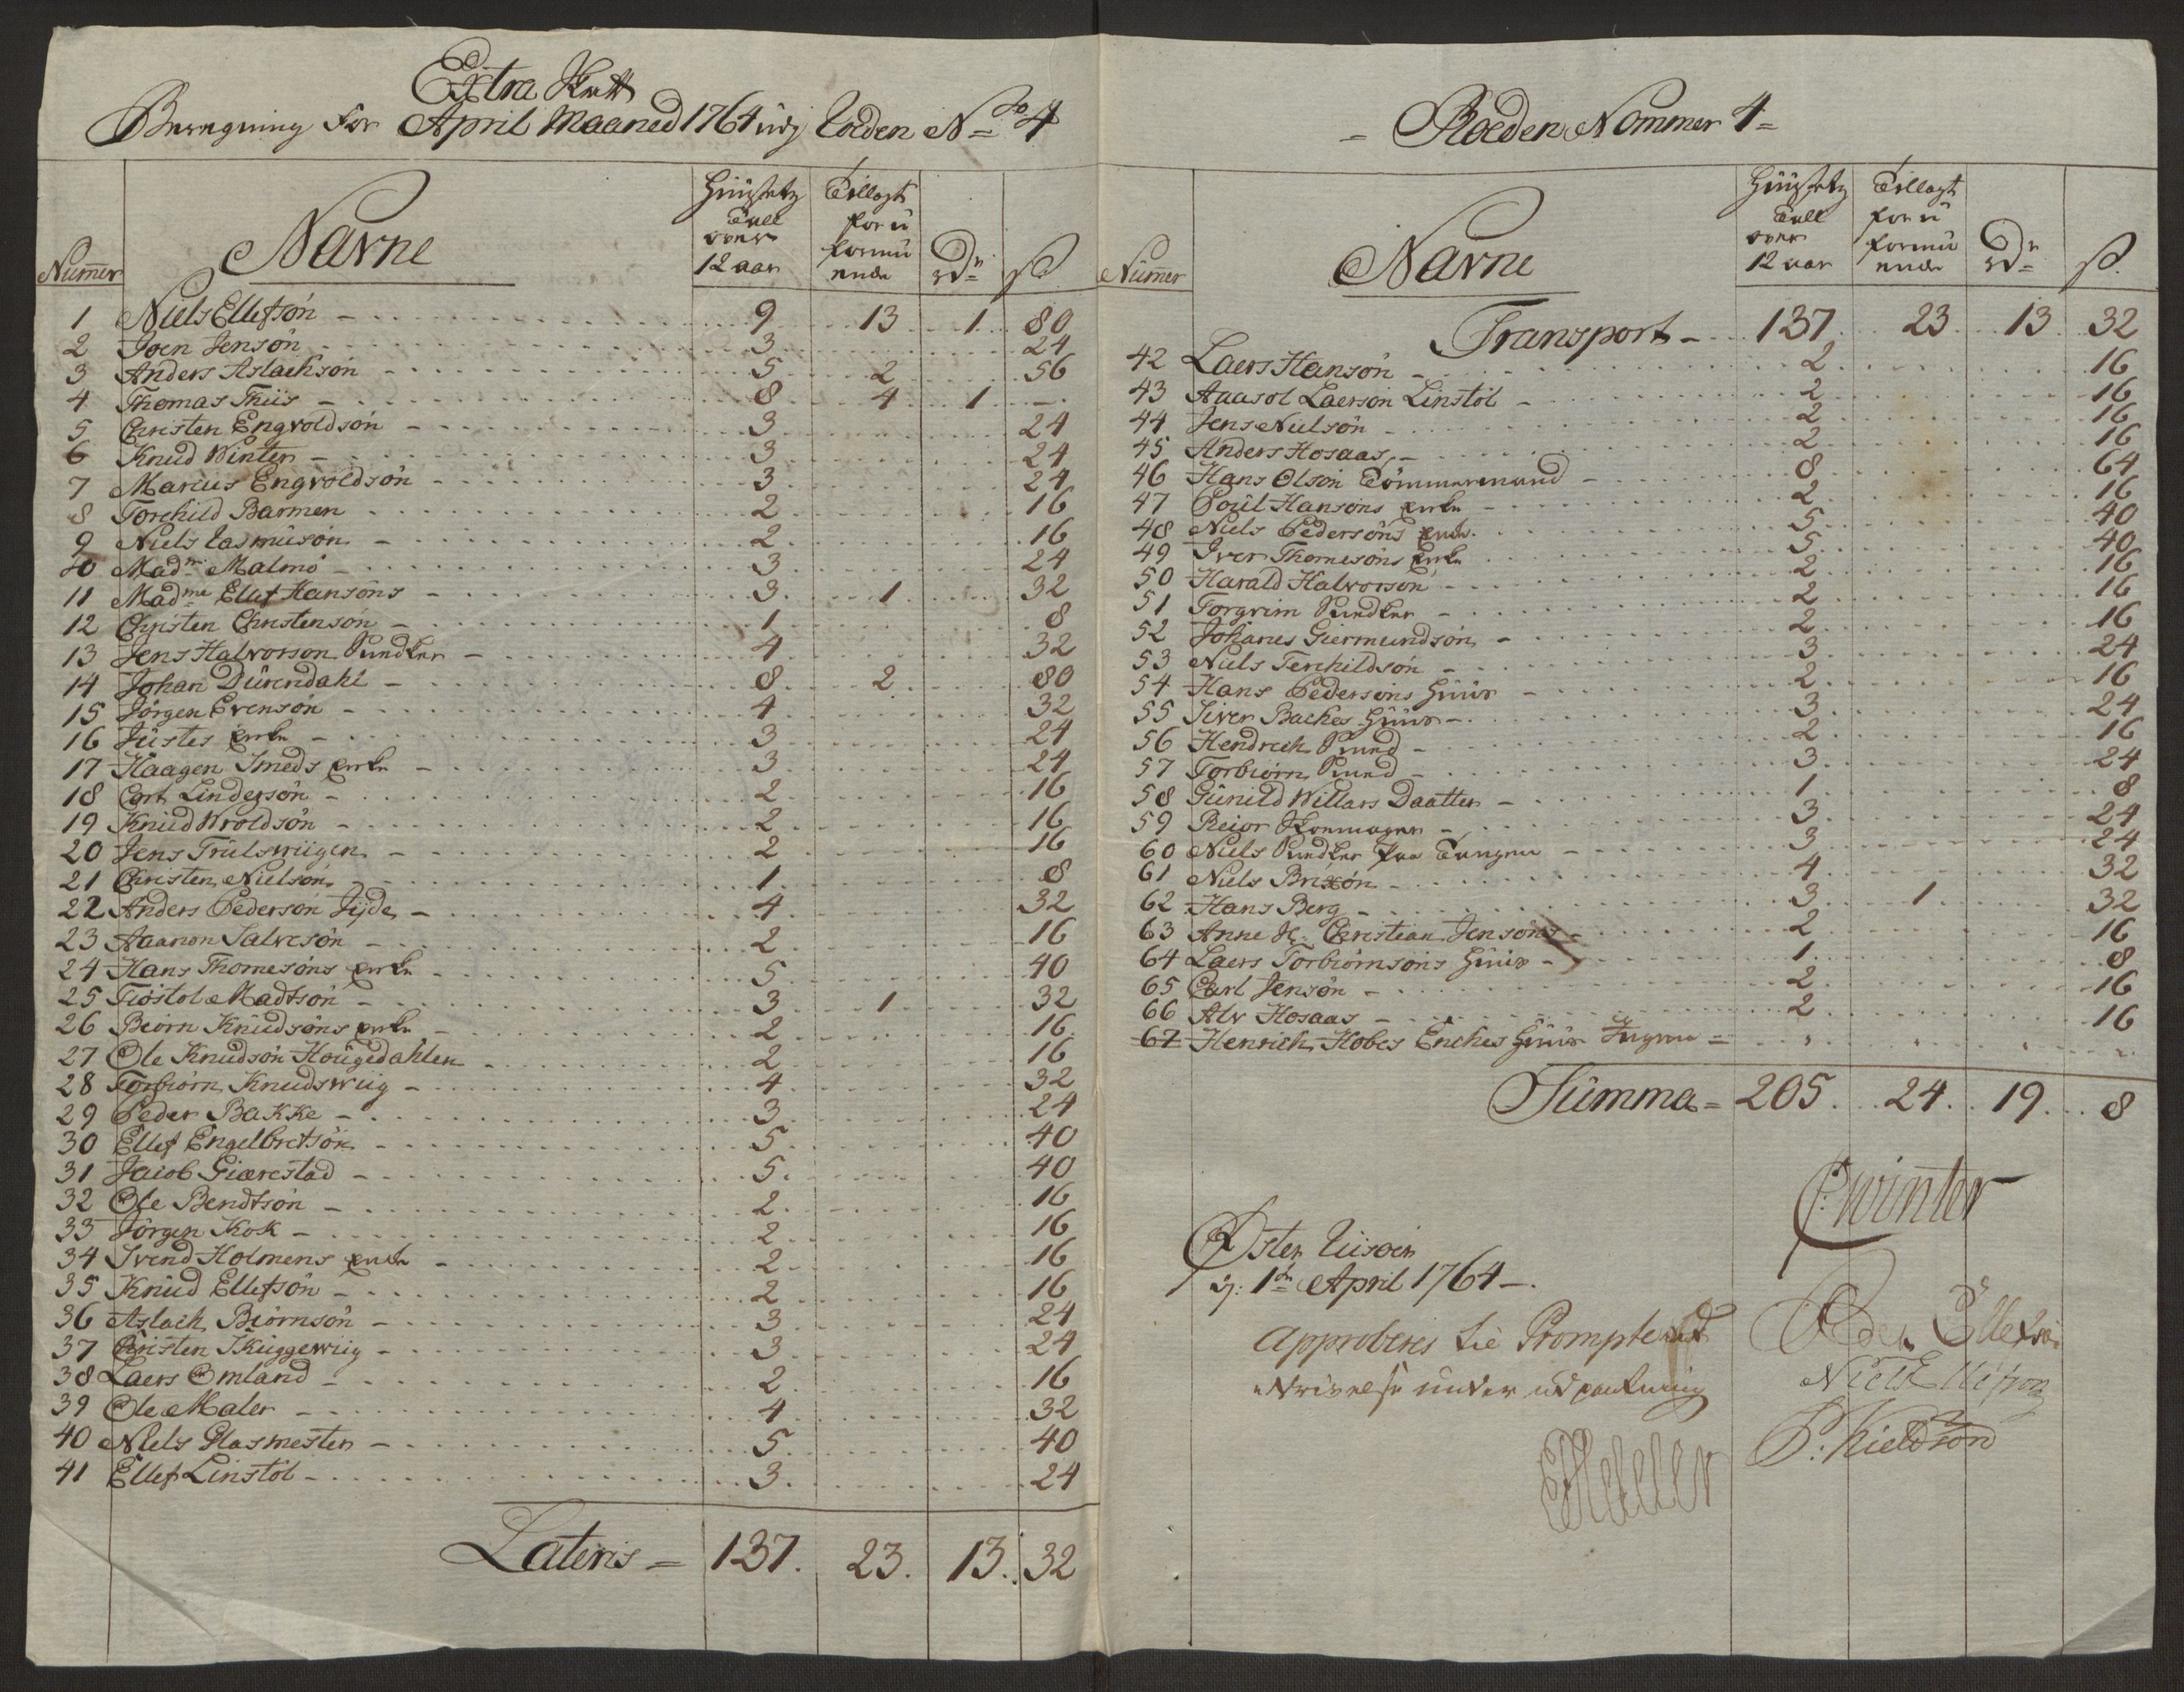 Extra Skatt
Beregning for April Maaned 1764 udj Roeden No 4
Nummer Navne Huusets Tall over 12 aar Tillagt for u formuende Rdr ß
1 Niels Ellefsön - 9 13 1 80
2 Joen Jensön - 3 24
3 Anders Aslachsön - 5 2 56
4 Thomas Thiis - 8 4 1 -
5 Christen Engvoldsön - 3 24
6 Knud Winter - 3 24
7 Marius Engvoldsön - 3 24
8 Torchild Barmen 2 16
9 Niels Rasmusön - 2 16
10 Madm Malmö - 3 24
11 Madme Ellef Hansöns - 3 1 32
12 Christen Christensön - 1 8
13 Jens Halvorson Snedker - 4 32
14 Johan Dürendahl - 8 2 80
15 Jörgen Evensön - 4 32
16 Justes Enke - 3 24
17 Haagen Smeds Enke - 3 24
18 Carl Lindegsön - 2 16
19 Knud Wroldsön - 2 16
20 Jens Trulswiigen - 2 16
21 Christen Nielsön - 1 8
22 Anders Pederson Fijde - 4 32
23 Aaanon Salvesön - 2 16
24 Hans Thomesöns Enke - 5 40
25 Tiöstol Madtsön - 3 1 32
26 Beörn Knudsöns Enke - 2 16
27 Ole Knudsön Hougedahlen - 2 16
28 Torbiörn Knudswiig - 4 32
29 Peder Bakke - 3 24
30 Ellef Engelbretsön - 5 40
31 Jacob Giærestad - 5 40
32 Ole Bendtsön - 2 16
33 Jörgen Kok - 2 16
34 Svend Holmens Enke - 2 16
35 Knud Ellefsön - 2 16
36 Aslach Biörnsön - 3 24
37 Christen Skuggewiig - 3 24
38 Laers Omland - 2 16
39 Ole Maler - 4 32
40 Niels Glasmester - 5 40
41 Ellef Linstöl - 3 24
Lateris = 137. 23. 13. 32
- Roeden Nommer 4 =
Nummer Navne Huusets Tall over 12 aar Tillagt for u formuende Rdr ß.
Transport - 137. 23. 13. 32
42 Laers Hansön - 2 16
43 Aaasol Laersön Linstöl - 2 16
44 Jens Nielsön - 2 16
45 Anders Hosaas - 2 16
46 Hans Olson Tömmermand - 8 64
47 Poul Hansöns Enke - 2 16
48 Niels Pedersöns Enke 5 40
49 Iver Thomesöns Enke 5 40
50 Harald Halvorsön 2 16
51 Torgrim Snedker - 2 16
52 Johanes Giermundsön - 2 16
53 Niels Terchildsön - 3 24
54 Hans Pedersons Huus - 2 16
55 Siver Baches Huus - 3 24
56 Hendrich Smed - 2 16
57 Torbiörn Smed - 3 24
58 Gunild Willars Daatter - 1 8
59 Reior Skomager - 3 24
60 Niels Snedker paa Tangen - 3 24
61 Niels Brixön - 4 32
62 Hans Berg - 3 1 32
63 Anne Christian Jensöns - 2 16
64 Laers Torbiörnsöns Huus - 1 8
65 Carl Jensön - 2 16
66 Alv Hosaas - 2 16
67 Henrich Hobes Enches Huus Ingen =
Summa = 205. 24. 19. 8
Öster Riisöer
dj: 1te April 1764 -.
Approberes til Prompte
under udpantning
Cwinter
Peder Ellefsön
Niels Ellefson
P: Kieldsön